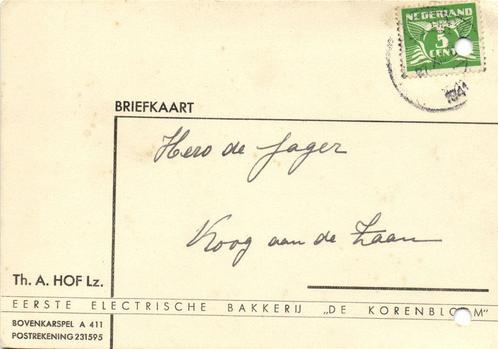 NEDERLAND
5
CENT
1941
BRIEFKAART
Hero de Jager
Koog aan de Zaan
Th. A. HOF Lz.
EERSTE ELECTRISCHE BAKKERIJ „DE KORENBLOEM"
BOVENKARSPEL A 411
POSTREKENING 231595